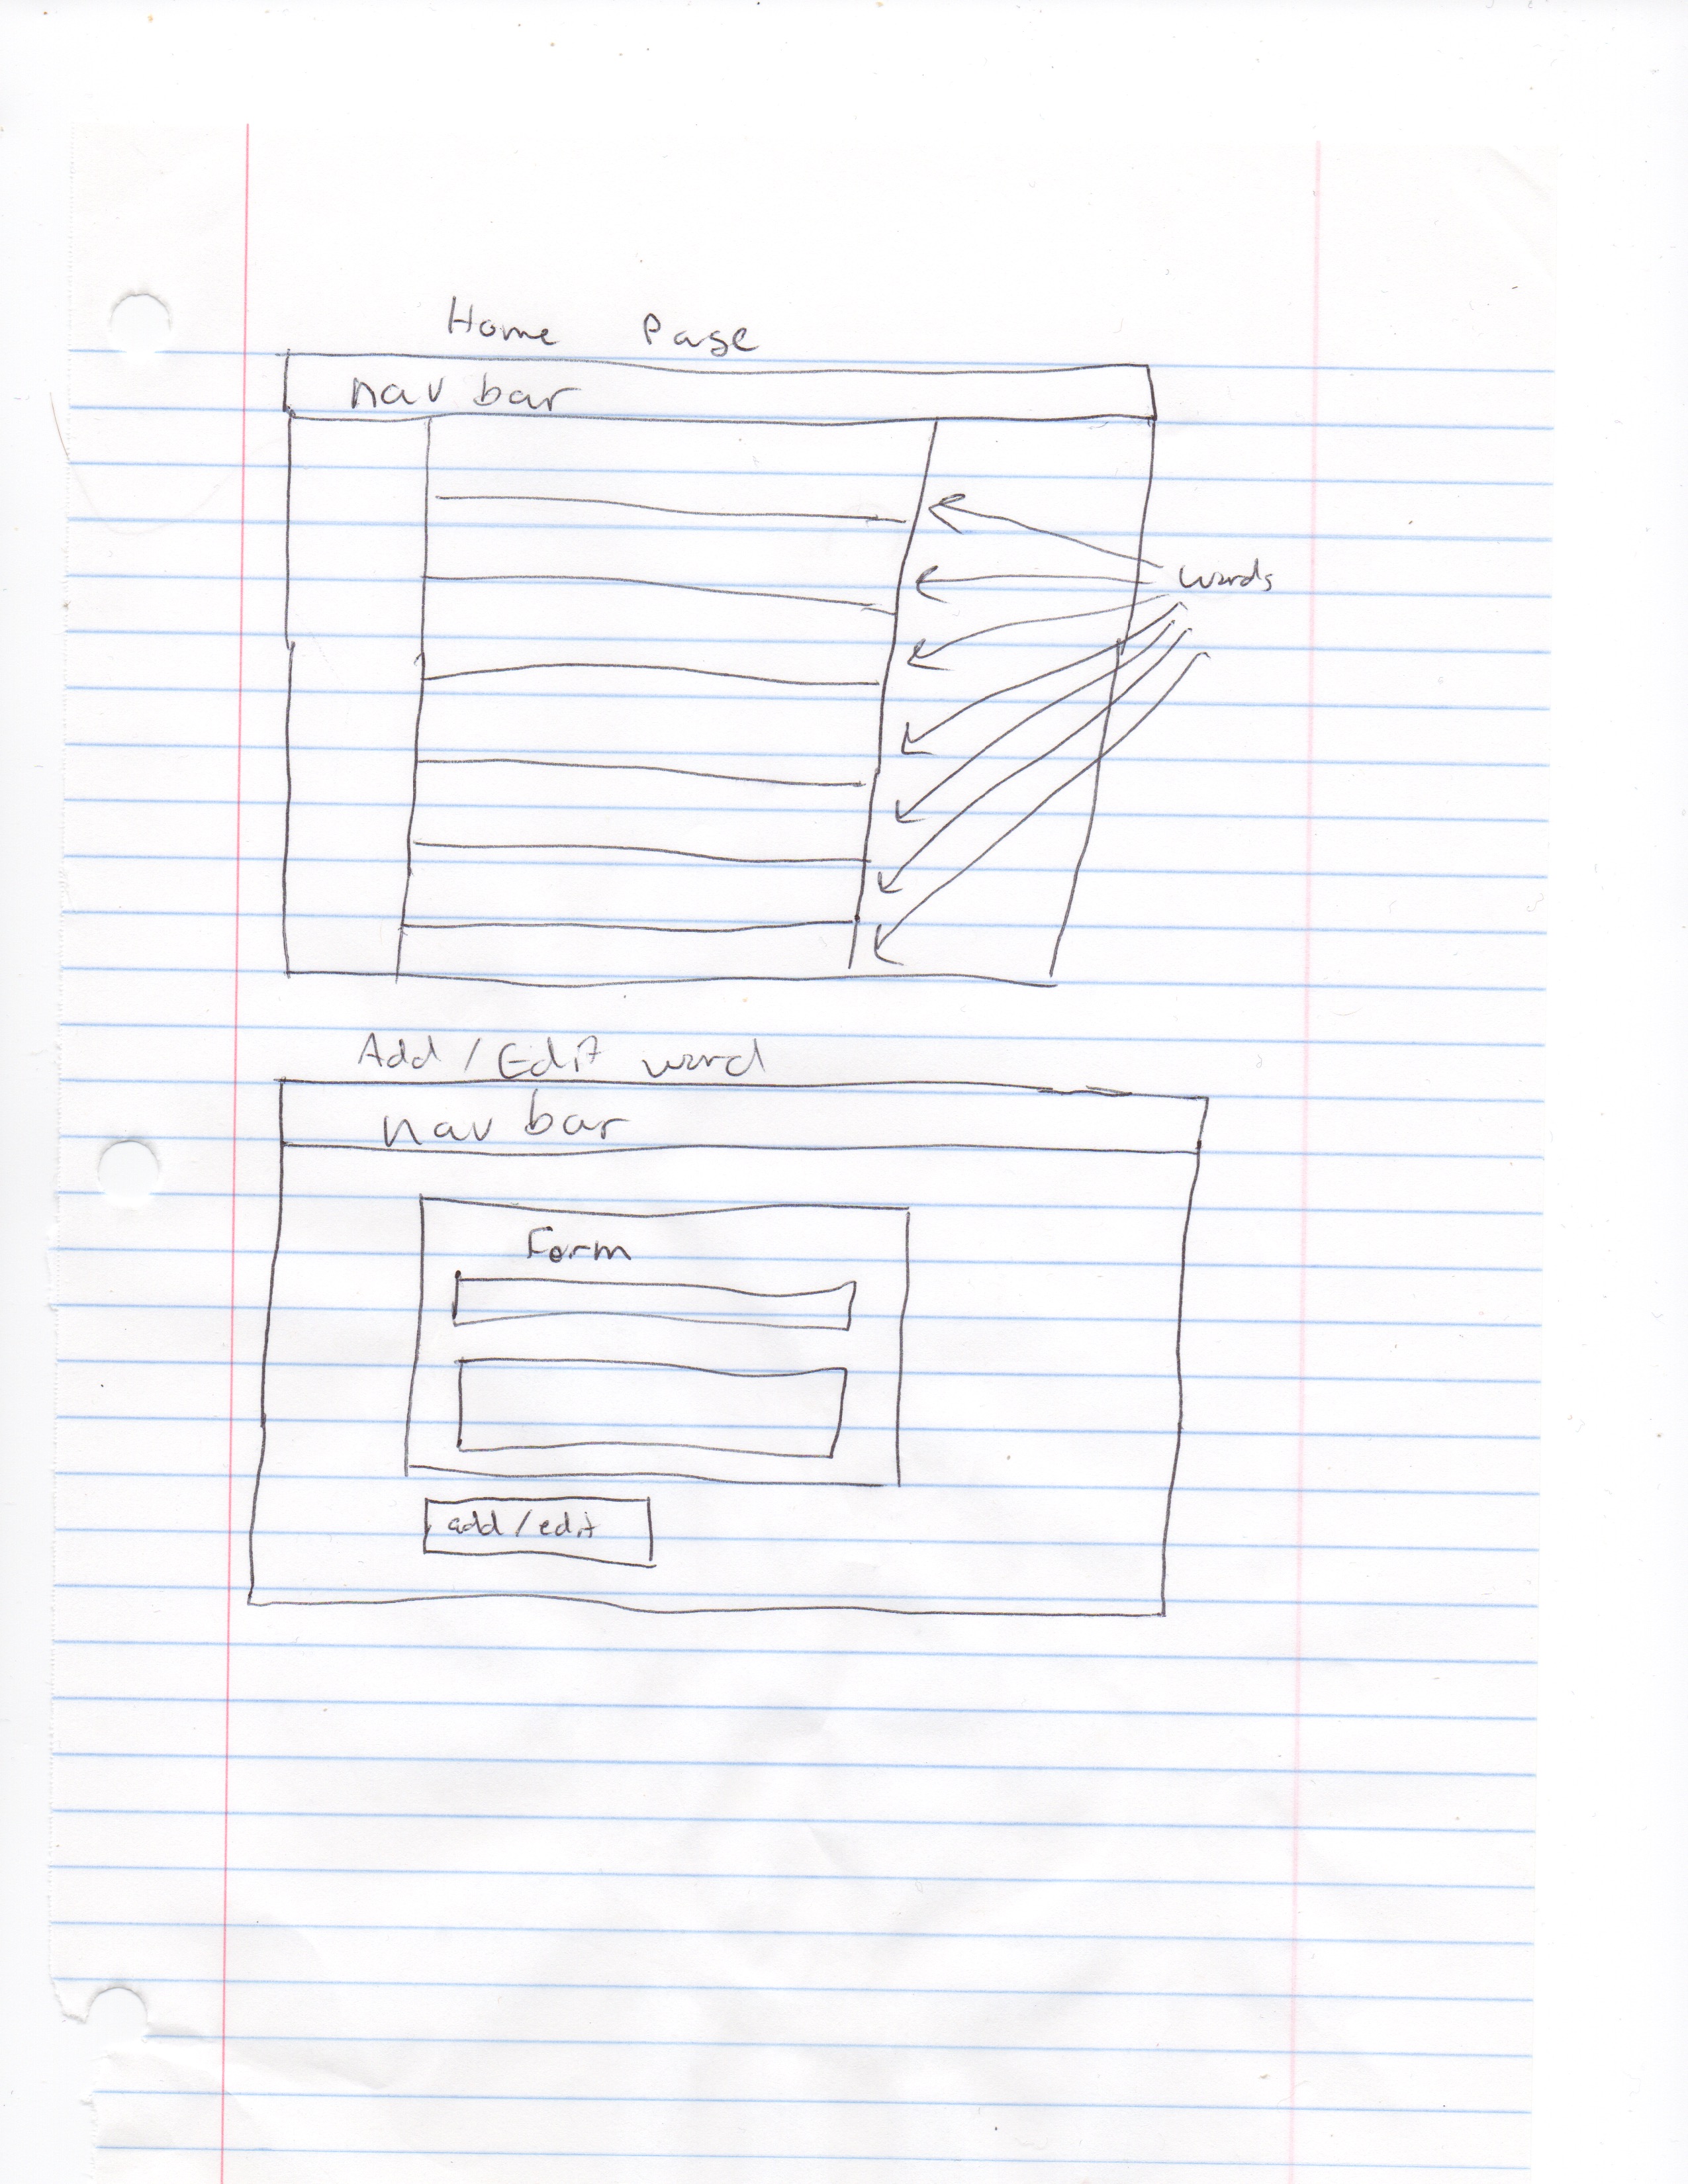 Home Page
nav bar
words
Add / Edit word
nav bar
Form
add / edit